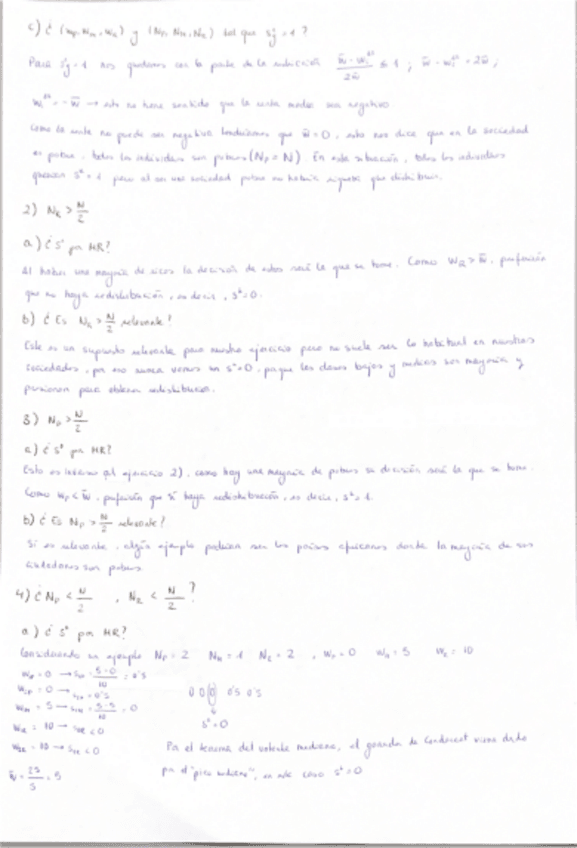 c) ¿ (wp, wM, wR) y (NP, NM, NR) tal que s*j = 1 ?
Para s*j = 1 nos quedamos con la parte de la ecuación (w̄ - wi)/2w̄ ≤ 1 ; w̄ - wi = 2w̄ ;
wi = - w̄ → esto no tiene sentido que la renta media sea negativa.
Como la renta no puede ser negativa tendríamos que w̄ = 0, esto nos dice que en la sociedad
es pobre, todos los individuos son pobres (Np = N) En esta situación, todos los individuos
querrían s* = 1 pero al ser una sociedad pobre no habría riqueza que distribuir.
2) NR > N/2
a) ¿ s* por MR?
Al haber una mayoría de ricos la decisión de estos será la que se tome. Como wR > w̄, preferirán
que no haya redistribución, es decir, s* = 0.
b) ¿ Es NR > N/2 relevante?
Este es un supuesto relevante para nuestro ejercicio pero no suele ser lo habitual en nuestras
sociedades, por eso nunca vemos un s* = 0, ya que las clases bajas y medias son mayoría y
presionan para obtener redistribución.
3) Np > N/2
a) ¿ s* por MR?
Esto es inverso al ejercicio 2), como hay una mayoría de pobres su decisión será la que se tome.
Como wp < w̄, preferirán que sí haya redistribución, es decir, s* = 1.
b) ¿ Es Np > N/2 relevante?
Sí es relevante, algún ejemplo podrían ser los países africanos donde la mayoría de sus
ciudadanos son pobres.
4) ¿ Np < N/2 , NR < N/2 ?
a) ¿ s* por MR?
Considerando un ejemplo Np = 2 NM = 1 NR = 2 , wp = 0 wM = 5 wR = 10
w1p = 0 → s1p = (5 - 0)/10 = 0'5
w2p = 0 → s2p = 0'5
w1M = 5 → s1M = (5 - 5)/10 = 0
w1R = 10 → s1R < 0
w2R = 10 → s2R < 0
w̄ = 25/5 = 5
0 0 0 0'5 0'5
s* = 0
Por el teorema del votante mediano, el ganador de Condorcet viene dado
por el "pico mediano", en este caso s* = 0